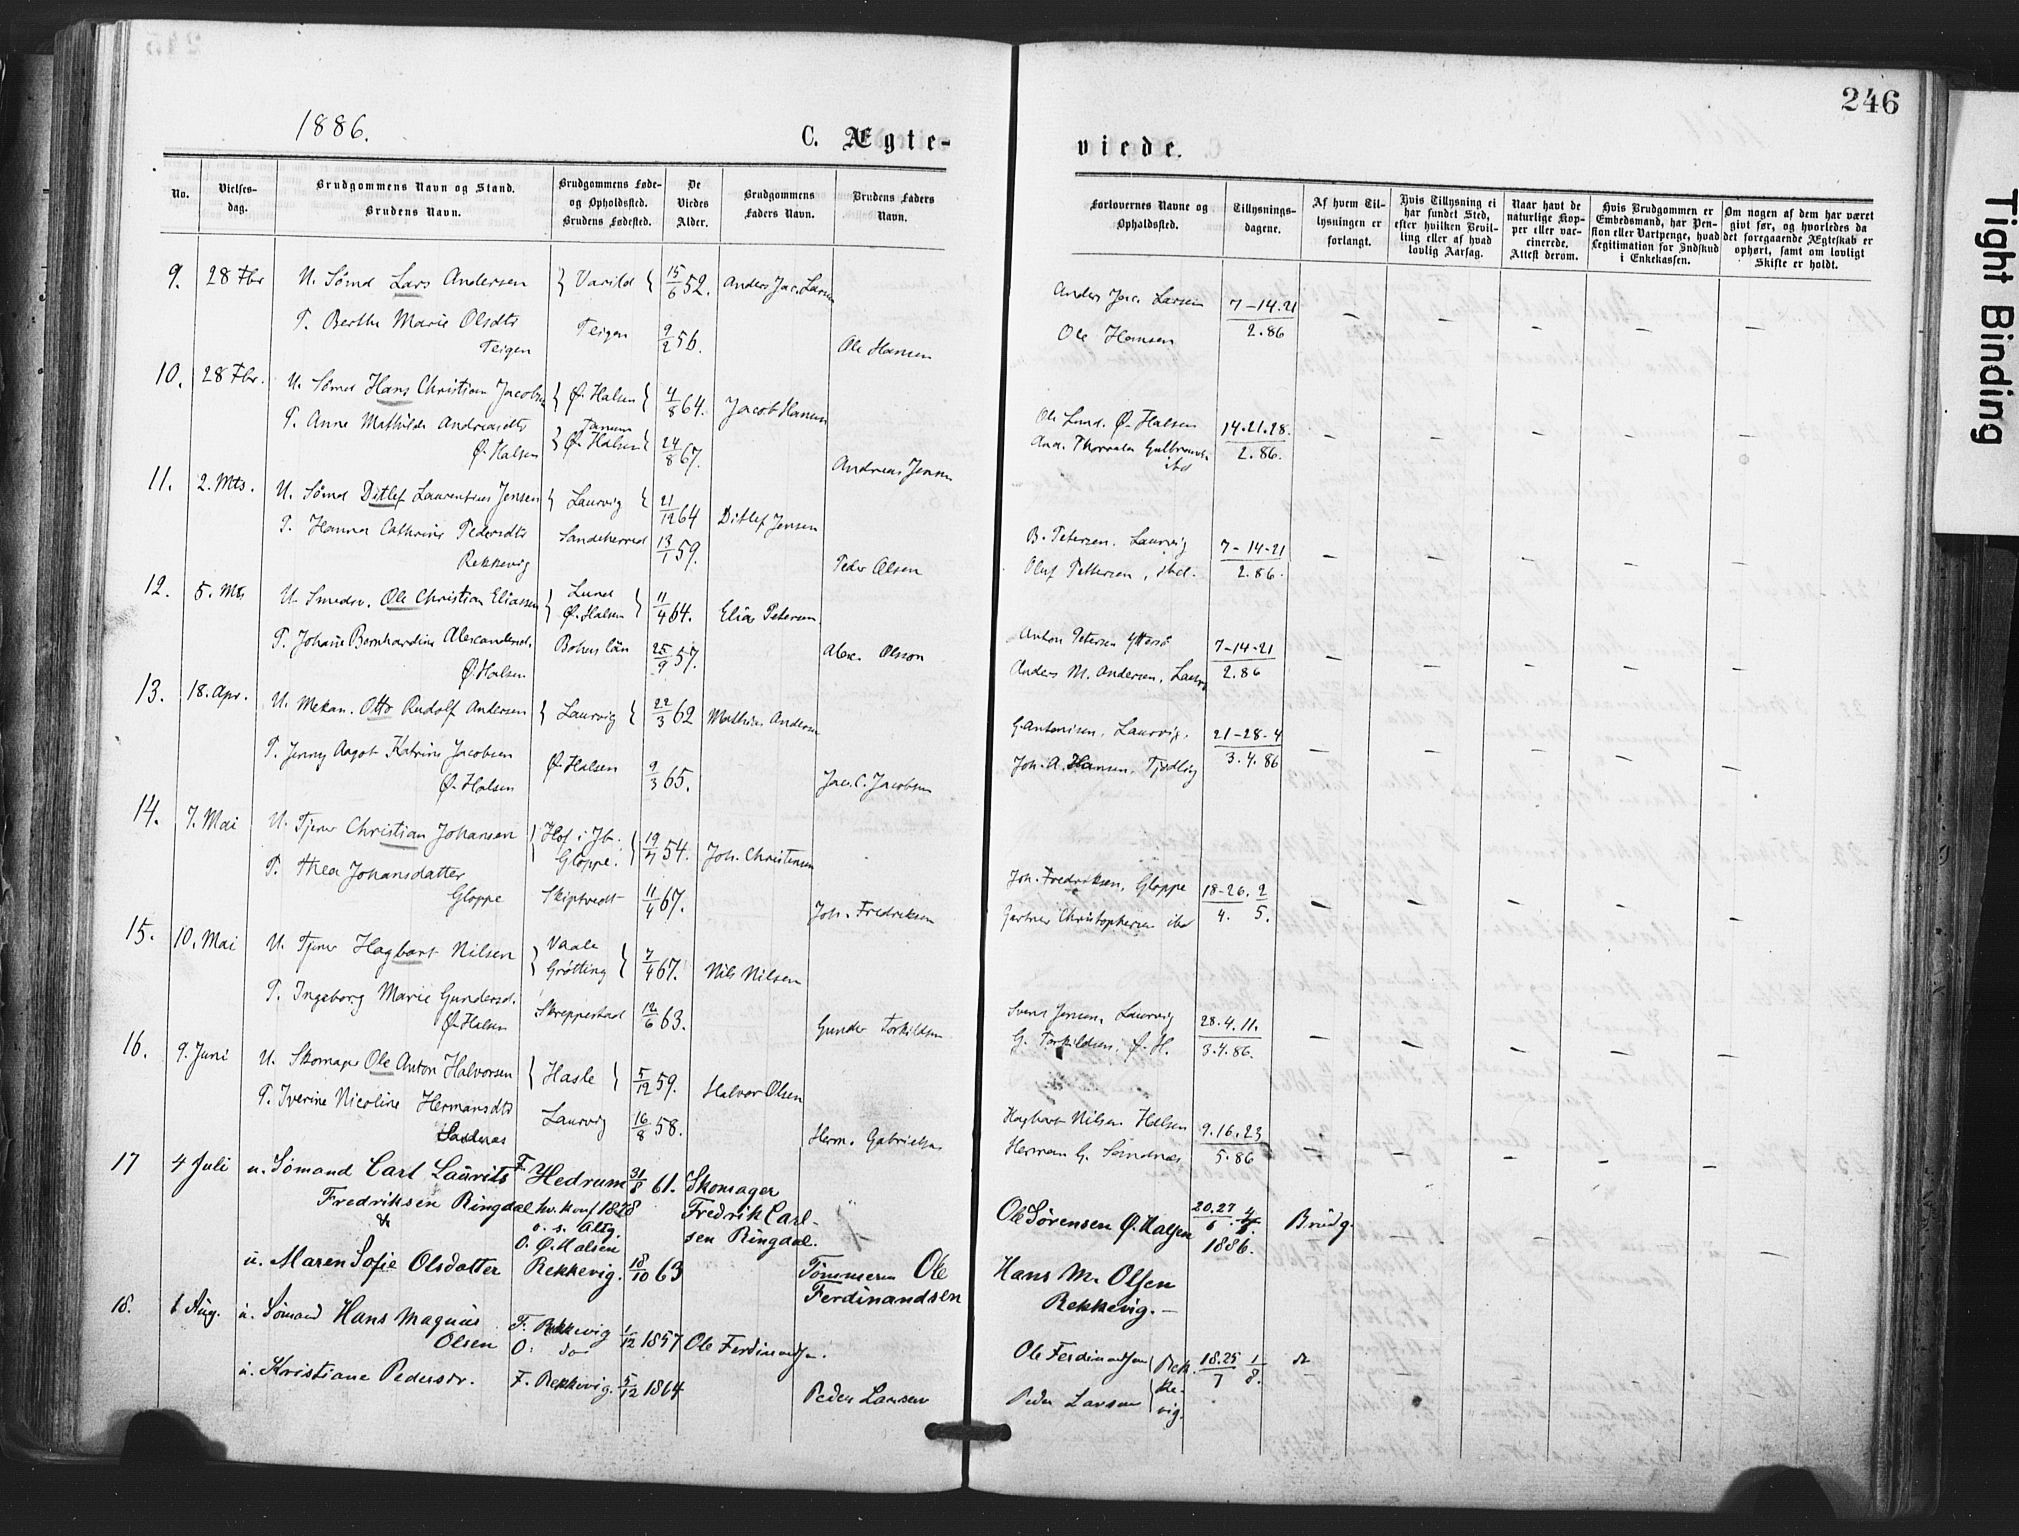 246
1886.
C. Ægte-
viede.
No.
Vielses-
dag.
Brudgommens Navn og Stand.
Brudens Navn.
Brudgommens Føde-
og Opholdssted.
Brudens Fødested.
De
Viedes
Alder.
Brudgommens
Faders Navn.
Brudens Faders
Navn.
Forlovernes Navne og
Opholdssted.
Tillysnings-
dagene.
Af hvem Til-
lysningen er
forlangt.
Hvis Tillysning ei
har fundet Sted,
efter hvilken Bevil-
ling eller af hvad
lovlig Aarsag.
Naar havt de
naturlige Kop-
per eller vac-
cinerede.
Attest derom.
Hvis Brudgommen er
Embedsmand, har Pen-
sion eller Vartpenge, hvad
Legitimation for Indskud
i Enkekassen.
Om nogen af dem har været
givt før, og hvorledes da
det foregaaende Ægteskab er
ophørt, samt om lovligt
Skifte er holdt.
9. 28 Fbr U. Sømd Lars Andersen } Varild { 15/6 52. Anders Jac. Larsen
Anders Jac. Larsen 7-14.21
P. Berthe Marie Olsdtr Teigen 9/2 56. Ole Hansen
Teigen
Ole Hansen 2.86
10. 28 Fbr. U. Sømd Hans Christian Jacobsen } Ø. Halsen } 4/8 64. Jacob Hansen
P. Anne Mathilde Andreasdtr } Tanum
Ø. Halsen } Ø. Halsen { 24/8 67. Andreas Jensen
Ole Lund. Ø. Halsen 14.21.28.
And. Thorvalsen Gulbrands. 2.86.
ibd
11. 2. Mts. U. Sømd Ditlef Laurentius Jensen } Laurvig { 21/12 64 Ditlef Jensen
P. Hanna Cathrine Pedersdtr Sandeherred 13/1 59. Peder Olsen
Rekkevig
B. Petersen. Laurvig 7-14-21
Oluf Pettersen, ibd. 2.86.
12. 5. Mts U. Smedsv. Ole Christian Eliassen } Lund
Ø. Halsen } 11/4 64. Elias Petersen
P. Johane Bernhardine Alexandersd. Bohus län 25/9 57. Alex. Olsson
Ø. Halsen
Anton Petersen Ytterø 7-14-21
Anders M. Andersen, Laurv 2.86
13. 18. Apr. U. Mekan. Otto Rudolf Andersen } Laurvig { 22/3 62 Mathias Andersen
P. Jenny Aagot Katrine Jacobsen Ø. Halsen 9/3 65. Jac. C. Jacobsen
Ø. Halsen
G. Antonisen. Laurvig. 21-28-4
Joh. A. Hansen, Tjødling 3.4.86
14. 7. Mai U. Tjener Christian Johansen } Hof i Jb.
Gloppe. } 19/7 54. Joh. Christensen
P. Thea Johansdatter Skiptvedt 11/4 67. Joh. Fredriksen
Gloppe
Joh. Fredriksen, Gloppe 18-26. 2
Gartner Christophersen ibd 4. 5.
15. 10. Mai U. Tjener Hagbart Nilsen } Vaale
Grötting } 7/4 67. Nils Nilsen
P. Ingeborg Marie Gundersd. Skreppestad 12/6 63. Gunder Torkildsen
Ø. Halsen
Svens Jensen, Laurvig 28.4.11.
G. Torkildsen, Ø. H. 3.4.86.
16. 9. Juni U. Skomager Ole Anton Halvorsen } Hasle } 5/12 59. Halvor Olsen
P. Iverine Nicoline Hermansdtr Laurvig 16/8 58. Herm. Gabrielsen
Sandenæs
Hagbart Nilsen Halsen 9.16.23
Herman G. Sandnæs 5.86
17 4 Juli u. Sømand Carl Laurits F. Hedrum 31/8 61. Skomager
Fredriksen Ringdal hv. konf 1878 Fredrik Carl-
& o. s. Attg. sen Ringdal.
O. Ø. Halsen
u. Maren Sofie Olsdatter Rekkevig. 18/10 63 Tömmerm Ole
Ferdinandsen
Ole Sørensen Ø. Halsen 20.27/6. 4/7. Brudg.
1886.
Hans M. Olsen
Rekkevig.
18. 1 Aug. u. Sømand Hans Magnus F. Rekkevig 1/12 1857 Ole Ferdinandsen.
Olsen O: do
u. Kristiane Pedersdr. F. Rekkevig. 5/12 1864 Peder Larsen
Ole Ferdinandsen } Rek- 18.25/7 1/8. do
Peder Larsen } ke-
vig.
Tight Binding